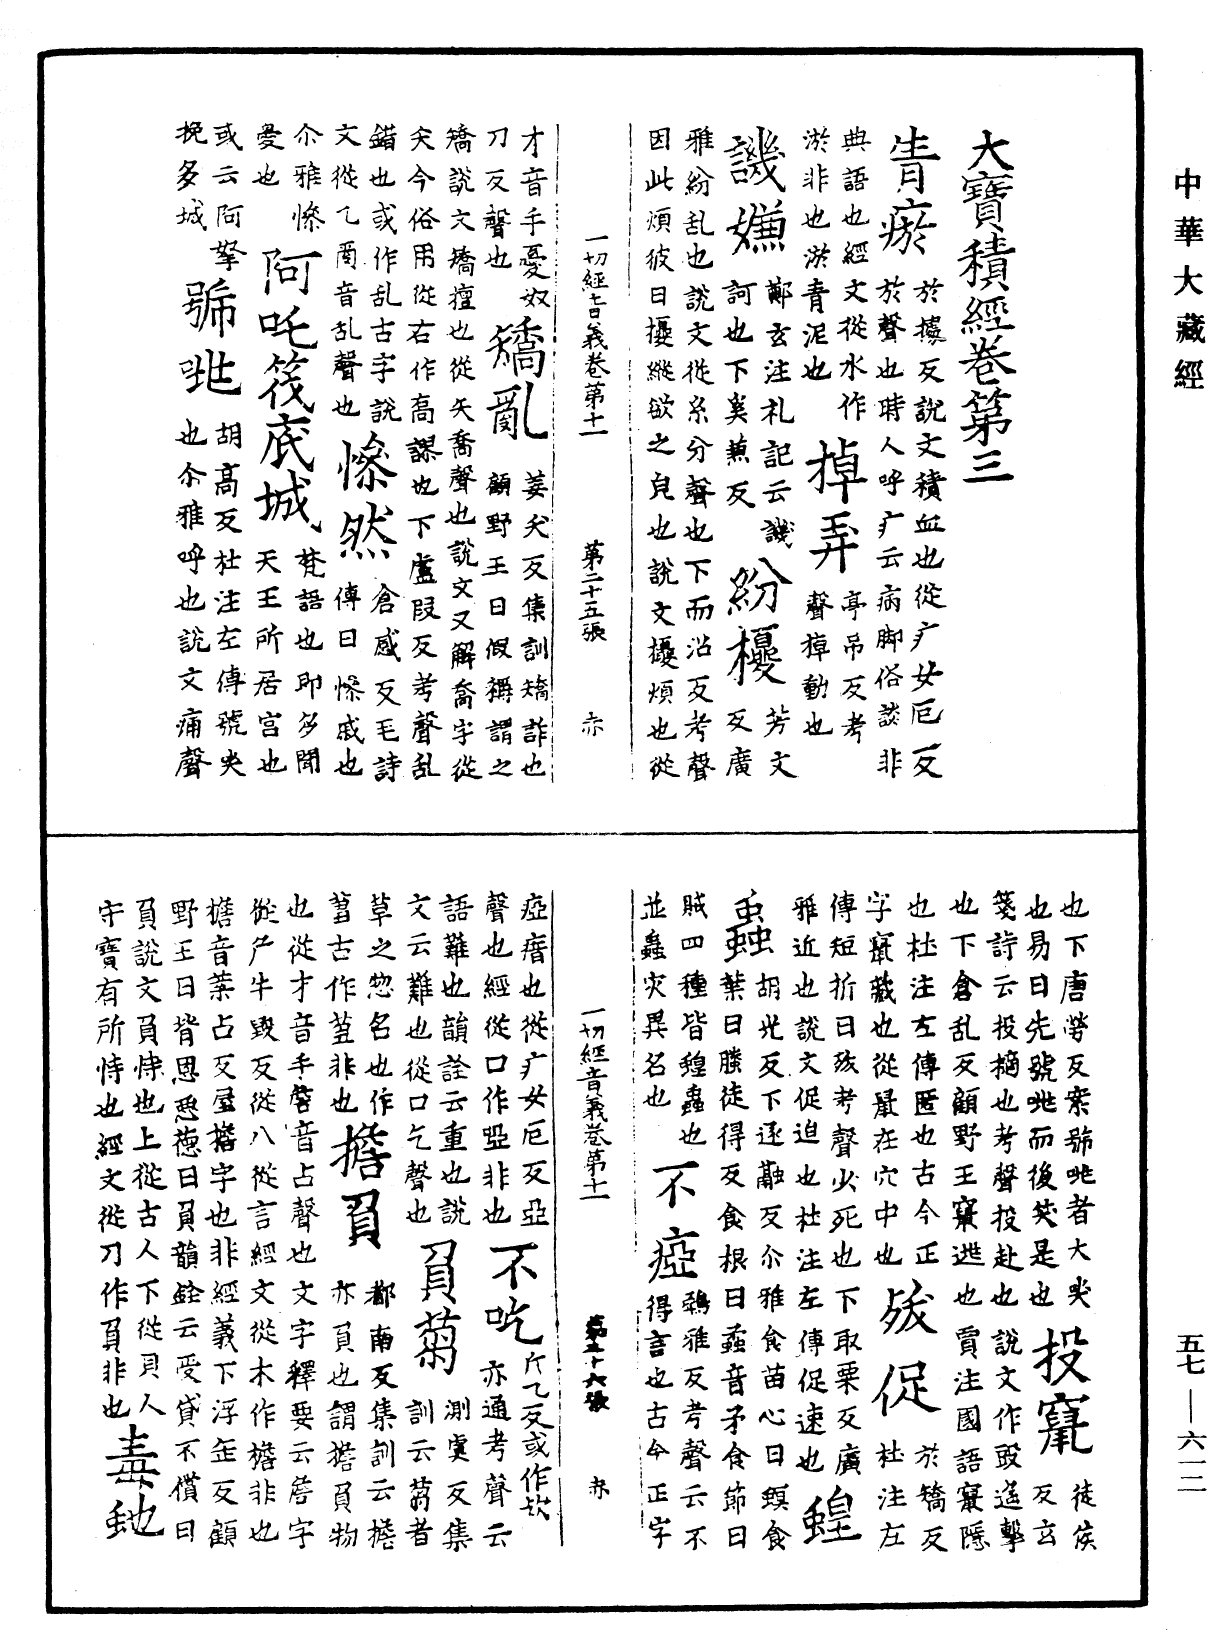 中華大藏經
大寶積經卷第三
青瘀 於據反說文積血也從疒女厄反
於聲也時人呼疒云病脚俗談非
典語也經文從水作
淤非也淤青泥也 掉弄 亭吊反考
聲掉動也
譏嫌 鄭玄注礼記云譏
訶也下奚兼反 紛擾 芳文
反廣
雅紛乱也說文從糸分聲也下而沼反考聲
因此煩彼日擾縱欲之皃也說文擾煩也從
一切經音義卷第十一 第二十五張 亦
才音手憂奴
刀反聲也 矯亂 姜夭反集訓矯詐也
顧野王曰假稱謂之
矯說文矯擅也從矢喬聲也說文又解喬字從
夭今俗用從右作高謬也下盧段反考聲乱
錯也或作乱古字說
文從乙𤔔音乱聲也 慘然 倉感反毛詩
傳曰慘慼也
尒雅慘
憂也 阿吒筏底城 梵語也即多聞
天王所居宮也
或云阿拏
挽多城 號咷 胡高反杜注左傳號哭
也尒雅呼也說文痛聲
也下唐勞反案號咷者大哭
也易曰先號咷而後笑是也 投竄 徒侯
反玄
箋詩云投擿也考聲投赴也說文作㲃遥擊
也下倉乱反顧野王竄逃也賈注國語竄隱
也杜注左傳匿也古今正
字竄藏也從鼠在穴中也 殀促 於矯反
杜注左
傳短折曰殀考聲少死也下取粟反廣
雅近也說文促迫也杜注左傳促速也 蝗
蟲 胡光反下逐融反尒雅食苗心曰螟食
葉曰螣徒得反食根曰蟊音矛食節曰
賊四種皆蝗蟲也
並蟲灾異名也 不瘂 鵶雅反考聲云不
得言也古今正字
一切經音義卷第十一 第二十六張 亦
瘂瘖也從疒女厄反亞
聲也經從口作啞非也 不吃 斤乙反或作㰟
亦通考聲云
語難也韻詮云重也說
文云難也從口乞聲也 負蒭 測虞反集
訓云蒭者
草之惣名也作
蒭古作芻非也 擔負 都南反集訓云擔
亦負也謂擔負物
也從才音手詹音占聲也文字釋要云詹字
從厃牛毀反從八從言經文從木作檐非也
檐音葉占反屋檐字也非經義下浮缶反顧
野王曰背恩忘德曰負韻詮云受貸不償曰
負說文負恃也上從古人下從貝人
守寶有所恃也經文從刀作負非也 毒虵
五七—六一二